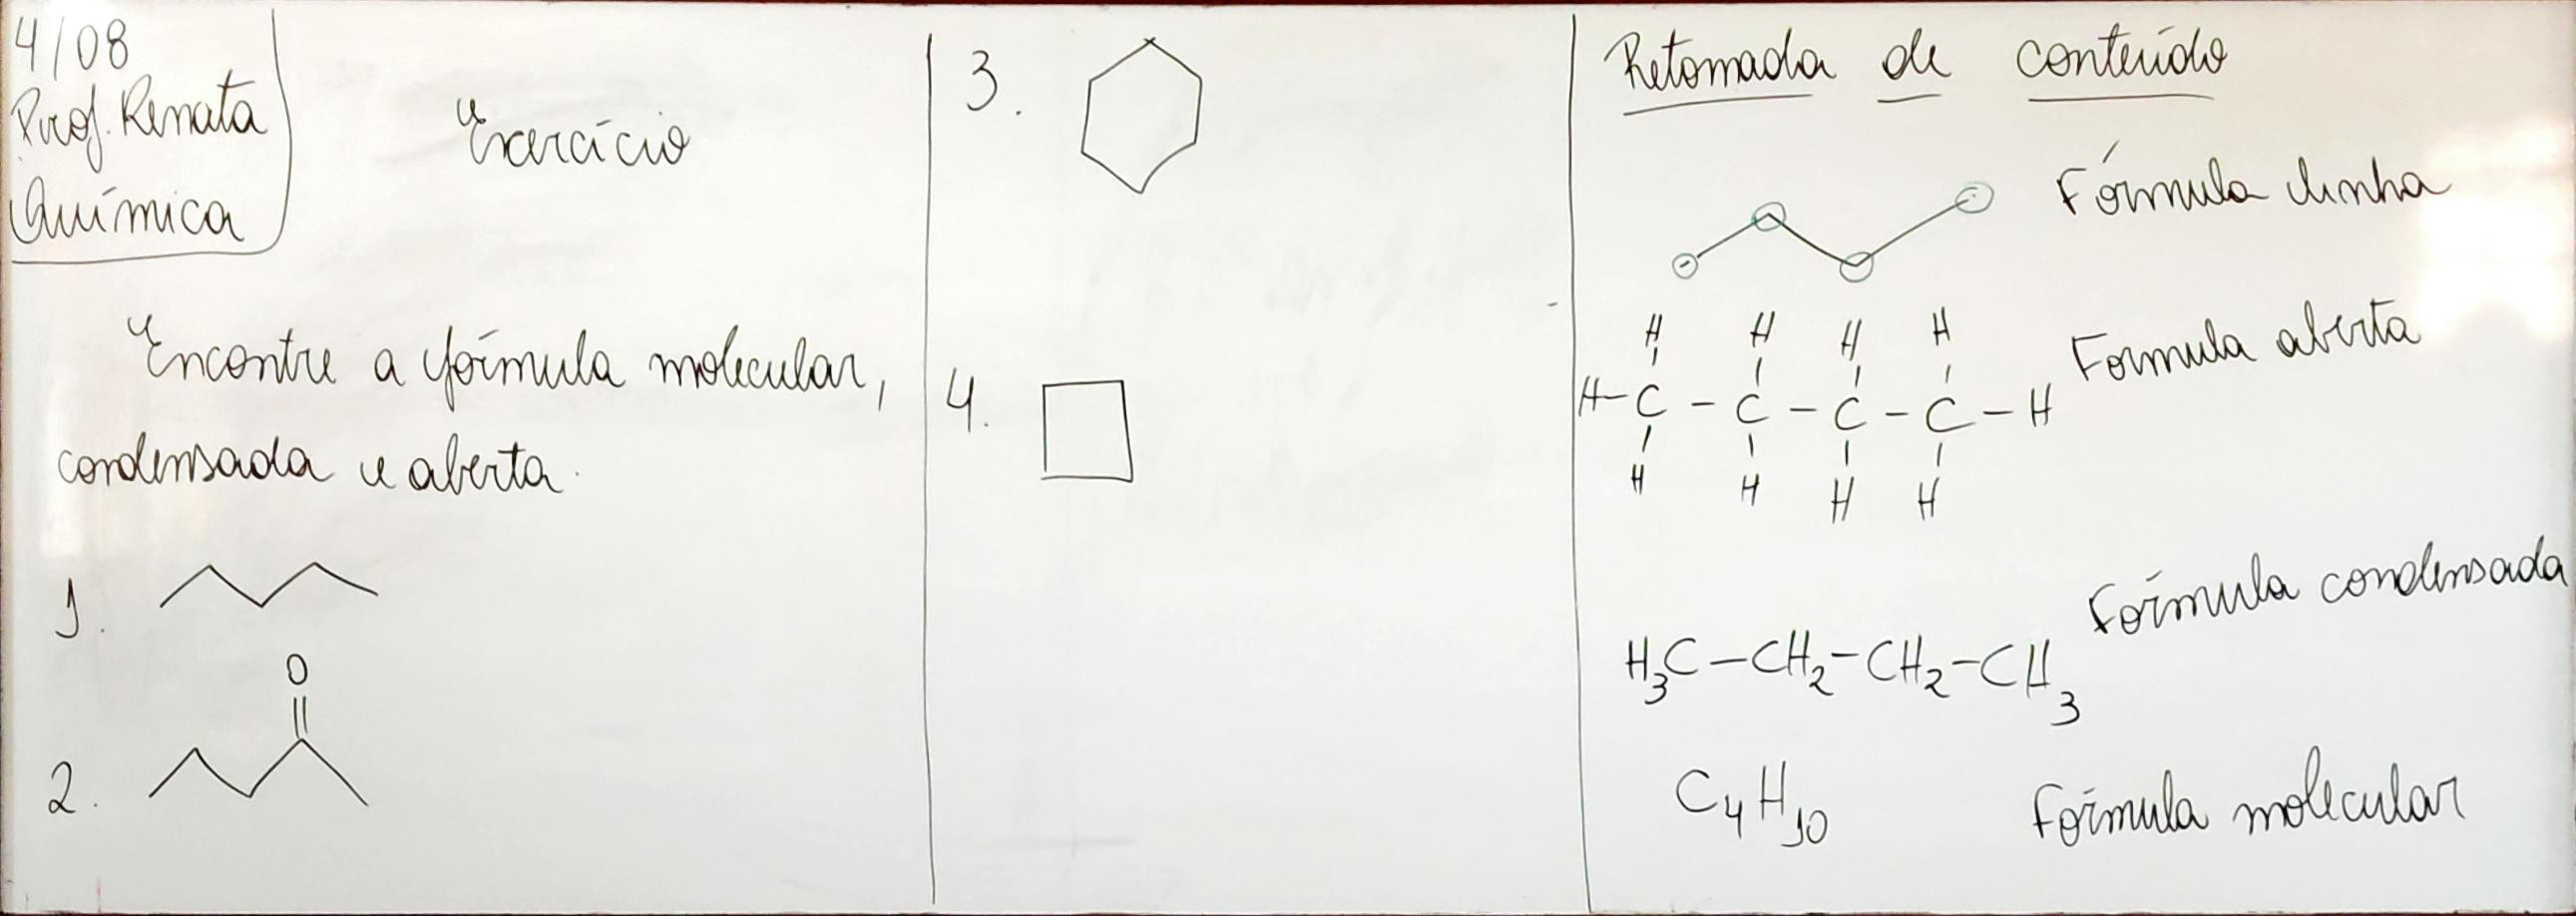 4/08
Prof. Renata
Química
Exercício
Encontre a fórmula molecular,
condensada e aberta.
1.
O
2.
3.
4.
Retomada de conteúdo
Fórmula linha
H H H H
H-C-C-C-C-H
H H H H
Formula aberta
Fórmula condensada
H₃C-CH₂-CH₂-CH₃
C₄H₁₀ Fórmula molecular